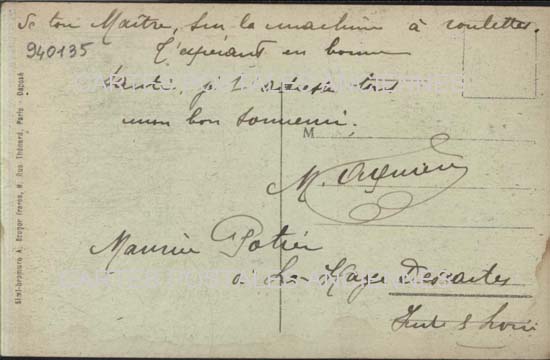 de ton Maître, sur la machine à roulettes.
940135
T'espérant en bonne
Santé, je t'adresse tout
mon bon souvenir.
M
M.
Maurice Potier
à La Haye Descartes
Indre & Loire
Simi-bromure A. Breger Frères, 9, Rue Thénard, Paris - Déposé